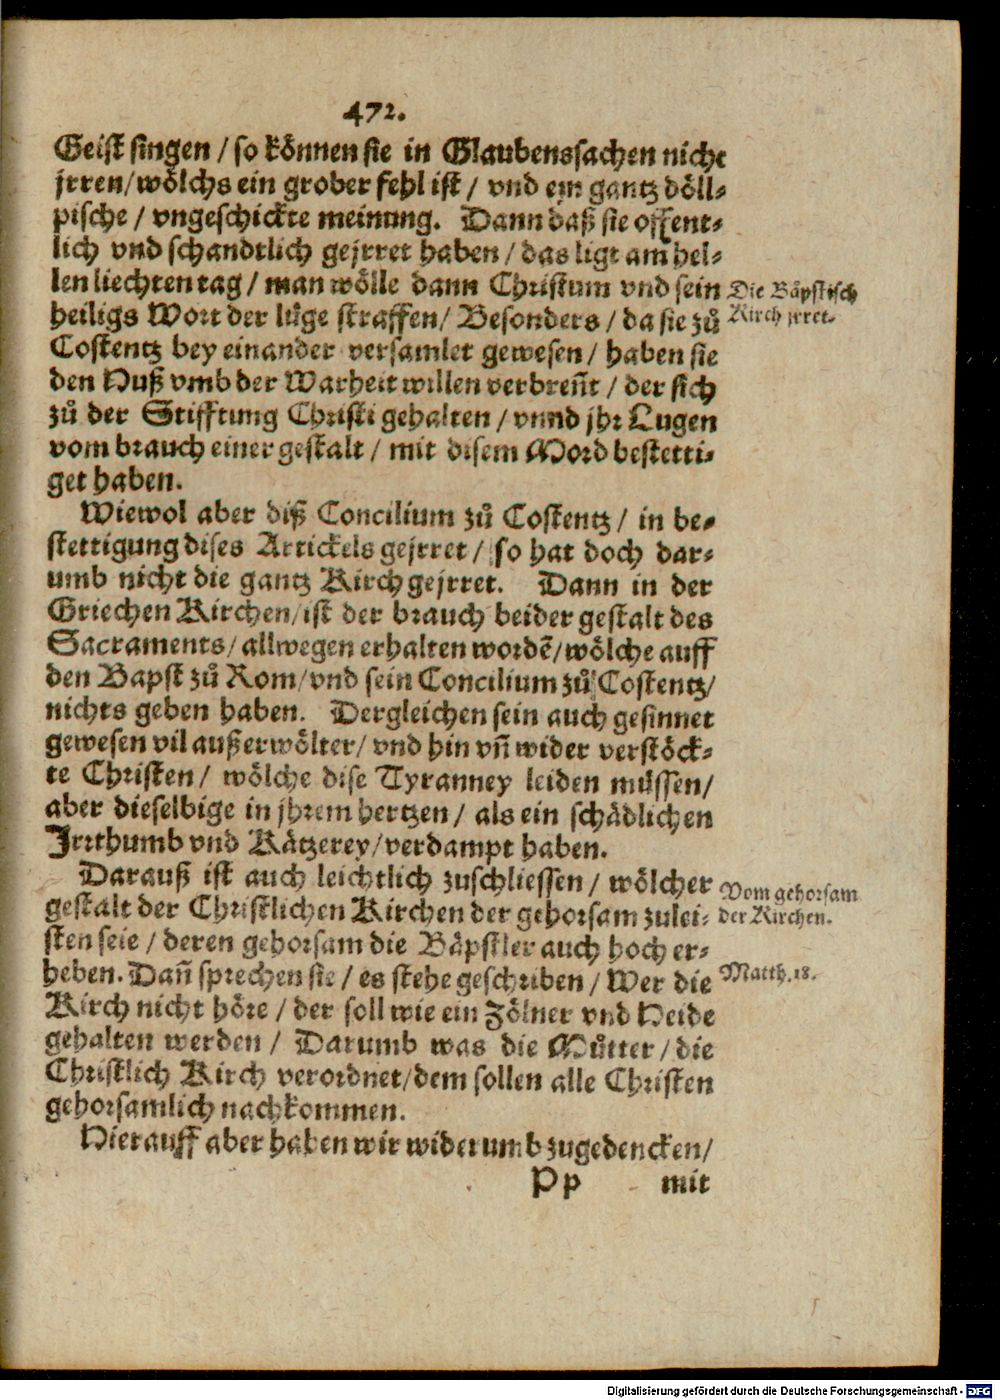 472.
Geist singen / so können sie in Glaubenssachen nicht
jrren / wölchs ein grober fehl ist / vnd ein gantz döll-
pische / vngeschickte meinung. Dann daß sie offent-
lich vnd schandtlich gejrret haben / das ligt am hel-
len liechten tag / man wölle dann Christum vnd sein
Die Bäpstisch
heiligs Wort der lüge straffen / Besonders / da sie zů
Kirch jrret.
Costentz bey einander versamlet gewesen / haben sie
den Huß vmb der Warheit willen verbreñt / der sich
zů der Stifftung Christi gehalten / vnnd jhr Lugen
vom brauch einer gestalt / mit disem Mord bestetti-
get haben.
Wiewol aber diß Concilium zů Costentz / in be-
stettigung dises Artickels gejrret / so hat doch dar-
umb nicht die gantz Kirch gejrret. Dann in der
Griechen Kirchen / ist der brauch beider gestalt des
Sacraments / allwegen erhalten wordẽ / wölche auff
den Bapst zů Rom / vnd sein Concilium zů Costentz /
nichts geben haben. Dergleichen sein auch gesinnet
gewesen vil außerwölter / vnd hin vñ wider verstöck-
te Christen / wölche dise Tyranney leiden müssen /
aber dieselbige in jhrem hertzen / als ein schädlichen
Jrrthumb vnd Kätzerey / verdampt haben.
Darauß ist auch leichtlich zuschliessen / wölcher
Vom gehorsam
gestalt der Christlichen Kirchen der gehorsam zulei-
der Kirchen.
sten seie / deren gehorsam die Bäpstler auch hoch er-
heben. Dañ sprechen sie / es stehe geschriben / Wer die
Matth. 18.
Kirch nicht höre / der soll wie ein Zölner vnd Heide
gehalten werden / Darumb was die Můtter / die
Christlich Kirch verordnet / dem sollen alle Christen
gehorsamlich nachkommen.
Hierauff aber haben wir widerumb zugedencken /
Pp mit
Digitalisierung gefördert durch die Deutsche Forschungsgemeinschaft - DFG